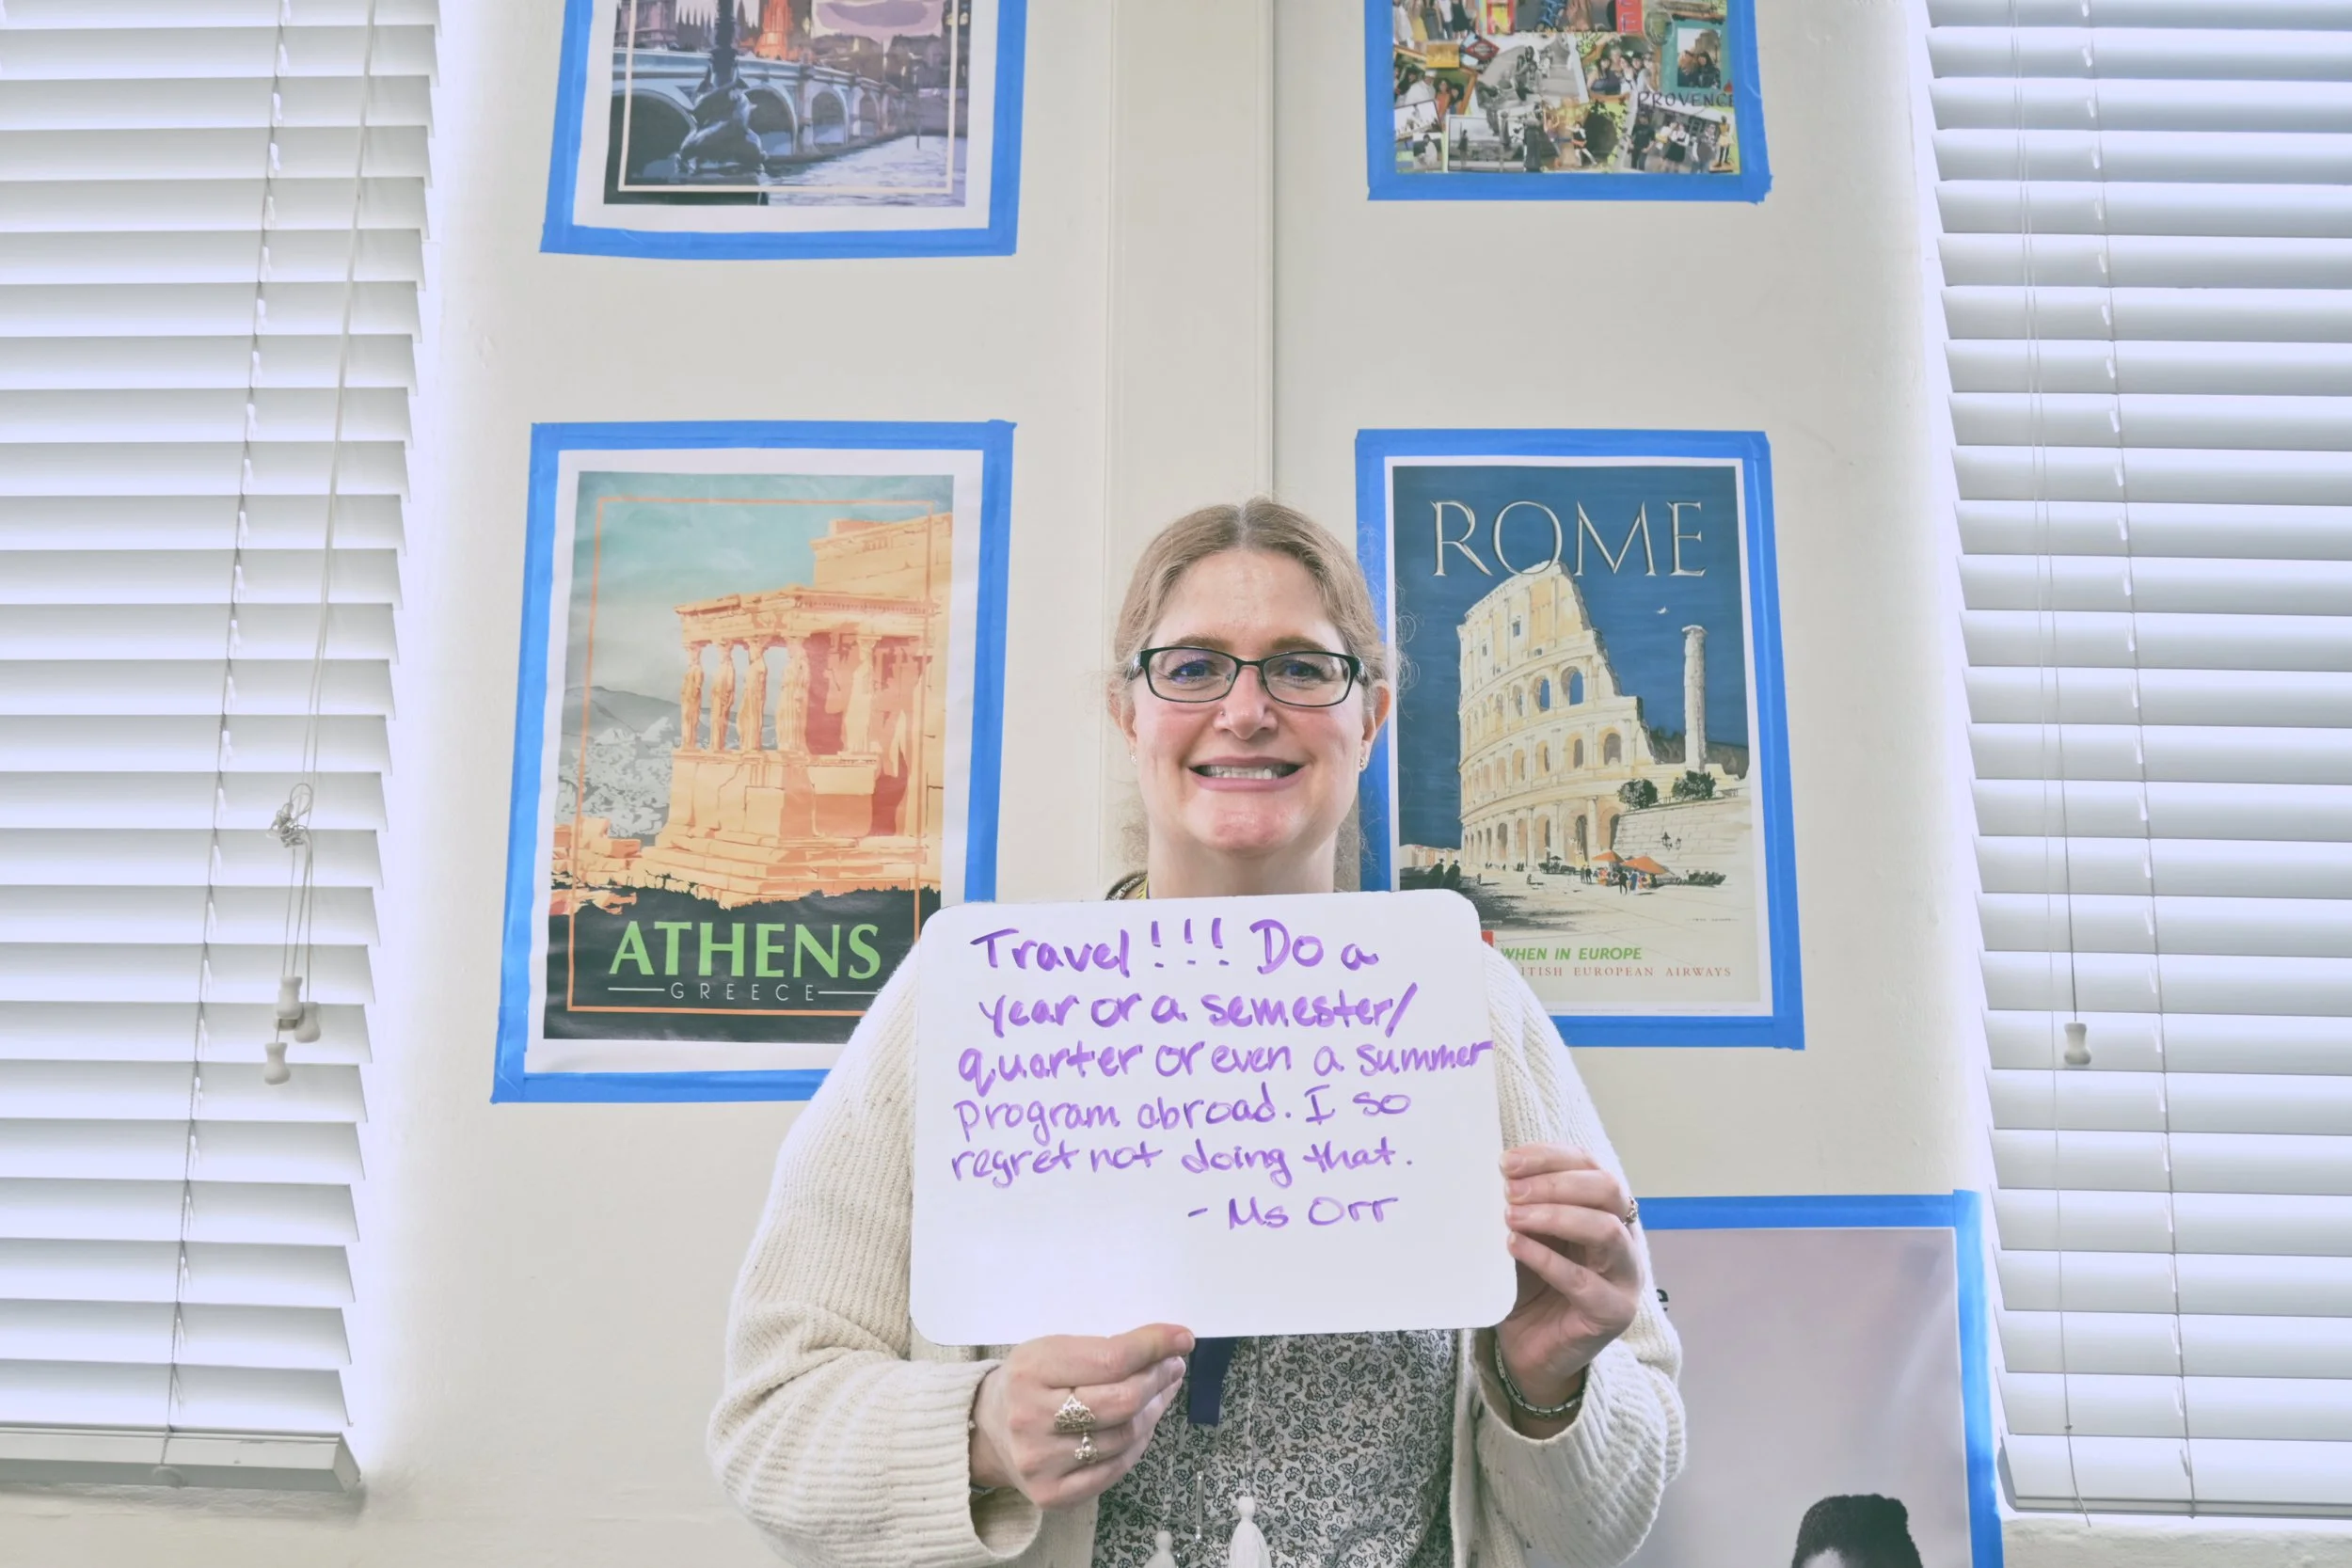 PROVENCE
ROME
WHEN IN EUROPE
TISH EUROPEAN AIRWAYS
ATHENS
GREECE
Travel!!! Do a
year or a semester/
quarter or even a summer
program abroad. I so
regret not doing that.
- Ms Orr
e